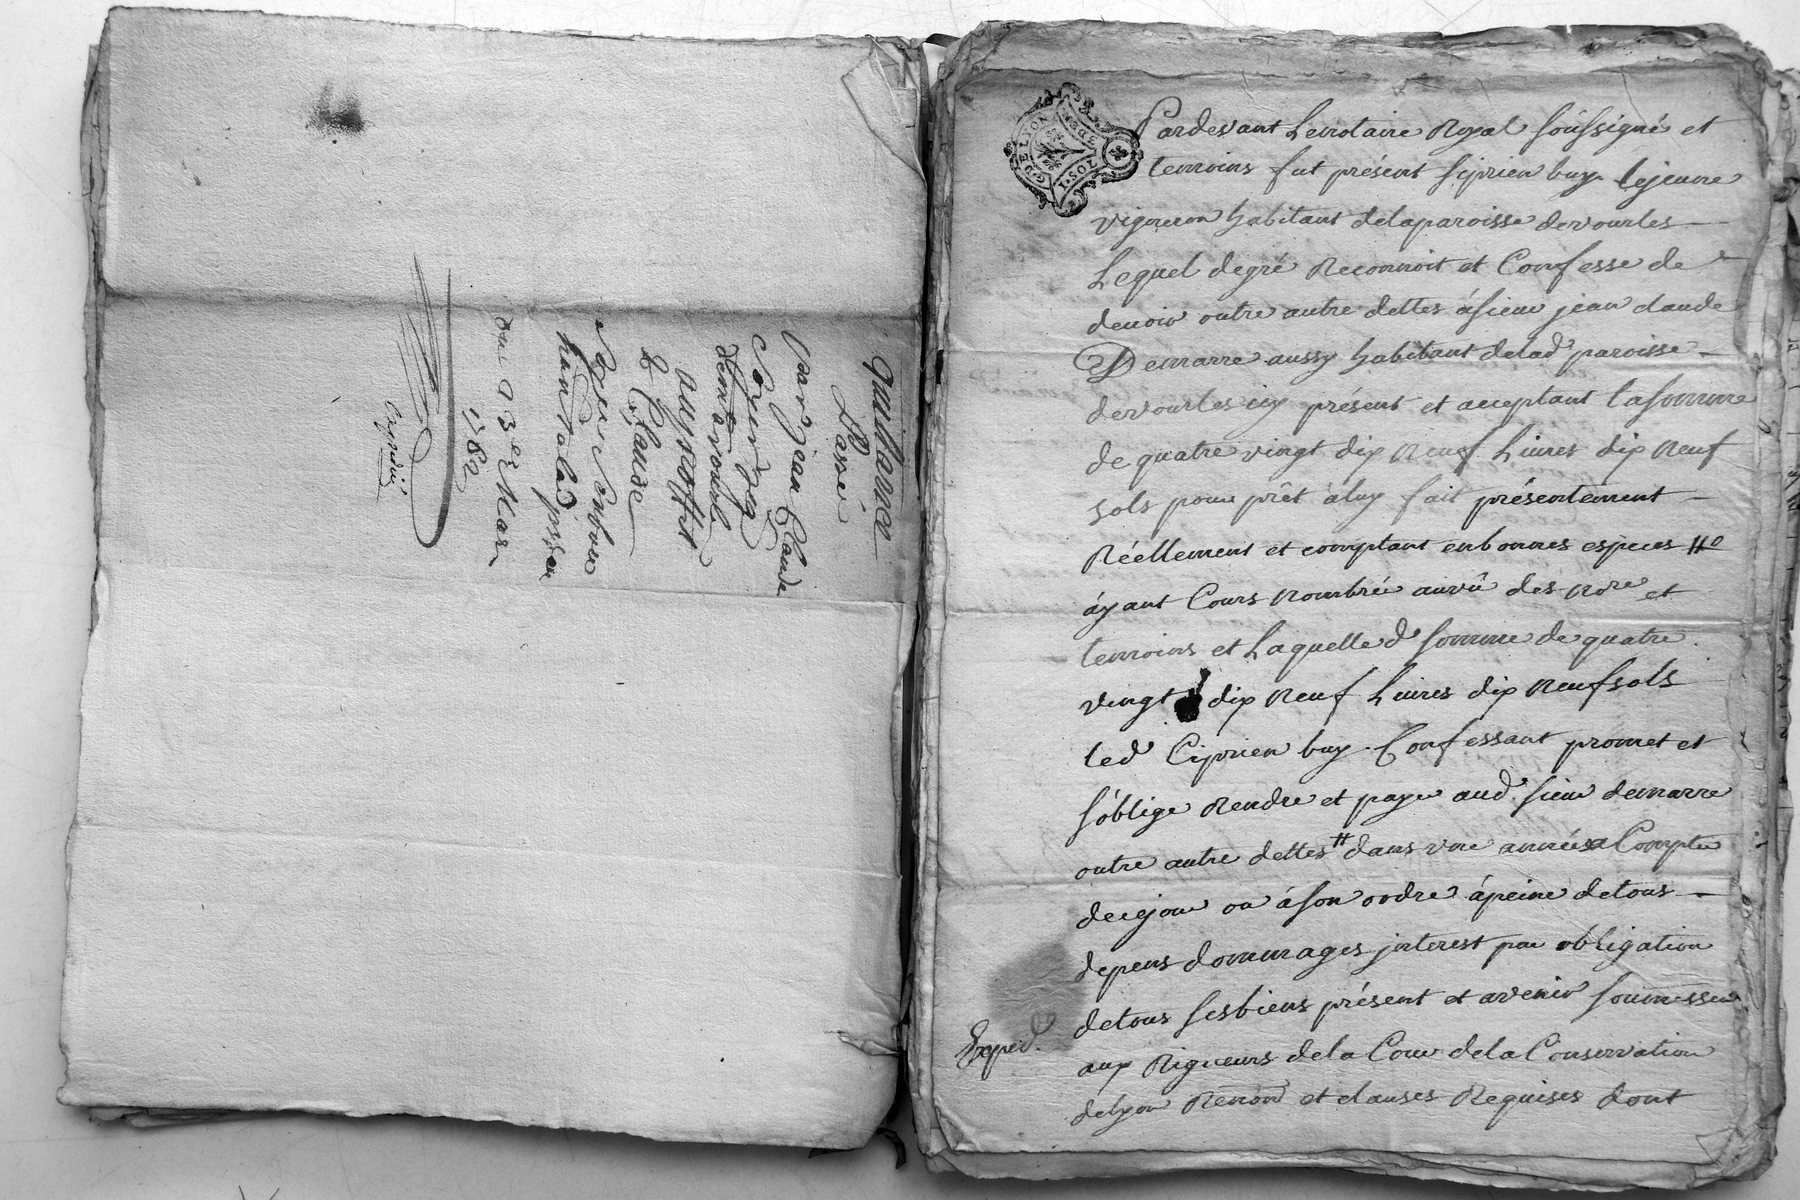 quittance
Passé
par jean Claude
a
& Claude
13e Mar
1782
Expedié
G. DE LYON
1. SOL
Pardevant Lenotaire Royal soussigné et
temoins fut présent Siprien buy lejeune
vigneron habitant delaparoisse devourles
Lequel degré Reconnoit et Confesse de
devoir outre autre dettes àsieur jean claude
Demarre aussy habitant delad paroisse
devourles icy présent et acceptant lasomme
de quatre vingt dix neuf Livres dix neuf
sols pour prêt àluy fait présentement
Réellement et comptant enbonnes especes
áyant Cours nombrée auvû des nore et
temoins et Laquelle d somme de quatre
vingt dix neuf Livres dix neufsols
led Ciprien buy Confessant promet et
s'oblige Rendre et payer aud. sieur demarre
outre autre dettes # dans une année a Compter
decejour ou àson ordre àpeine detous
depens dommages interest par obligation
detous sesbiens présent et avenir soumission
aux Rigueurs dela Cour dela Conservation
delyon Renon et clauses Requises dont
Exped.